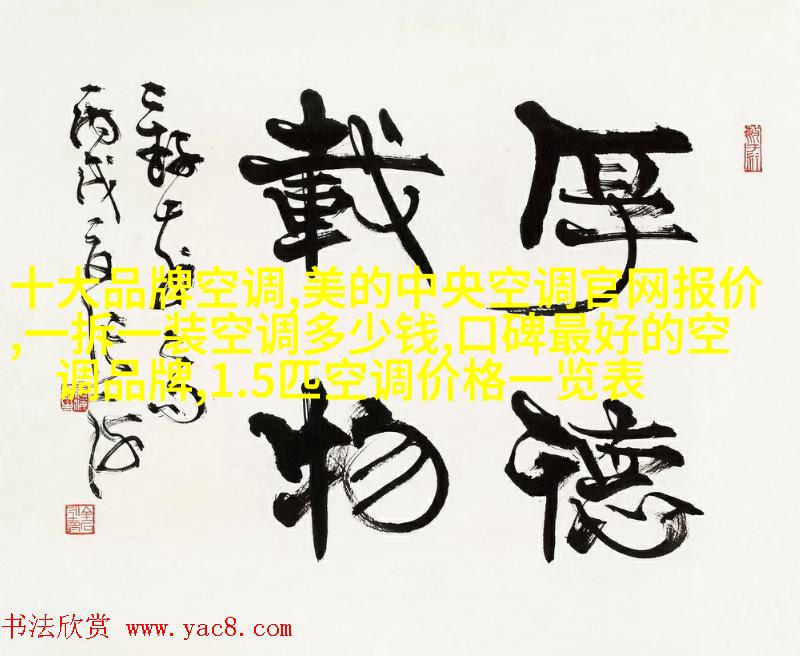 厚德
載物
丙戌
十大品牌空调,美的中央空调官网报价
,一拆一装空调多少钱,口碑最好的空
调品牌,1.5匹空调价格一览表
书法欣赏 www.yac8.com